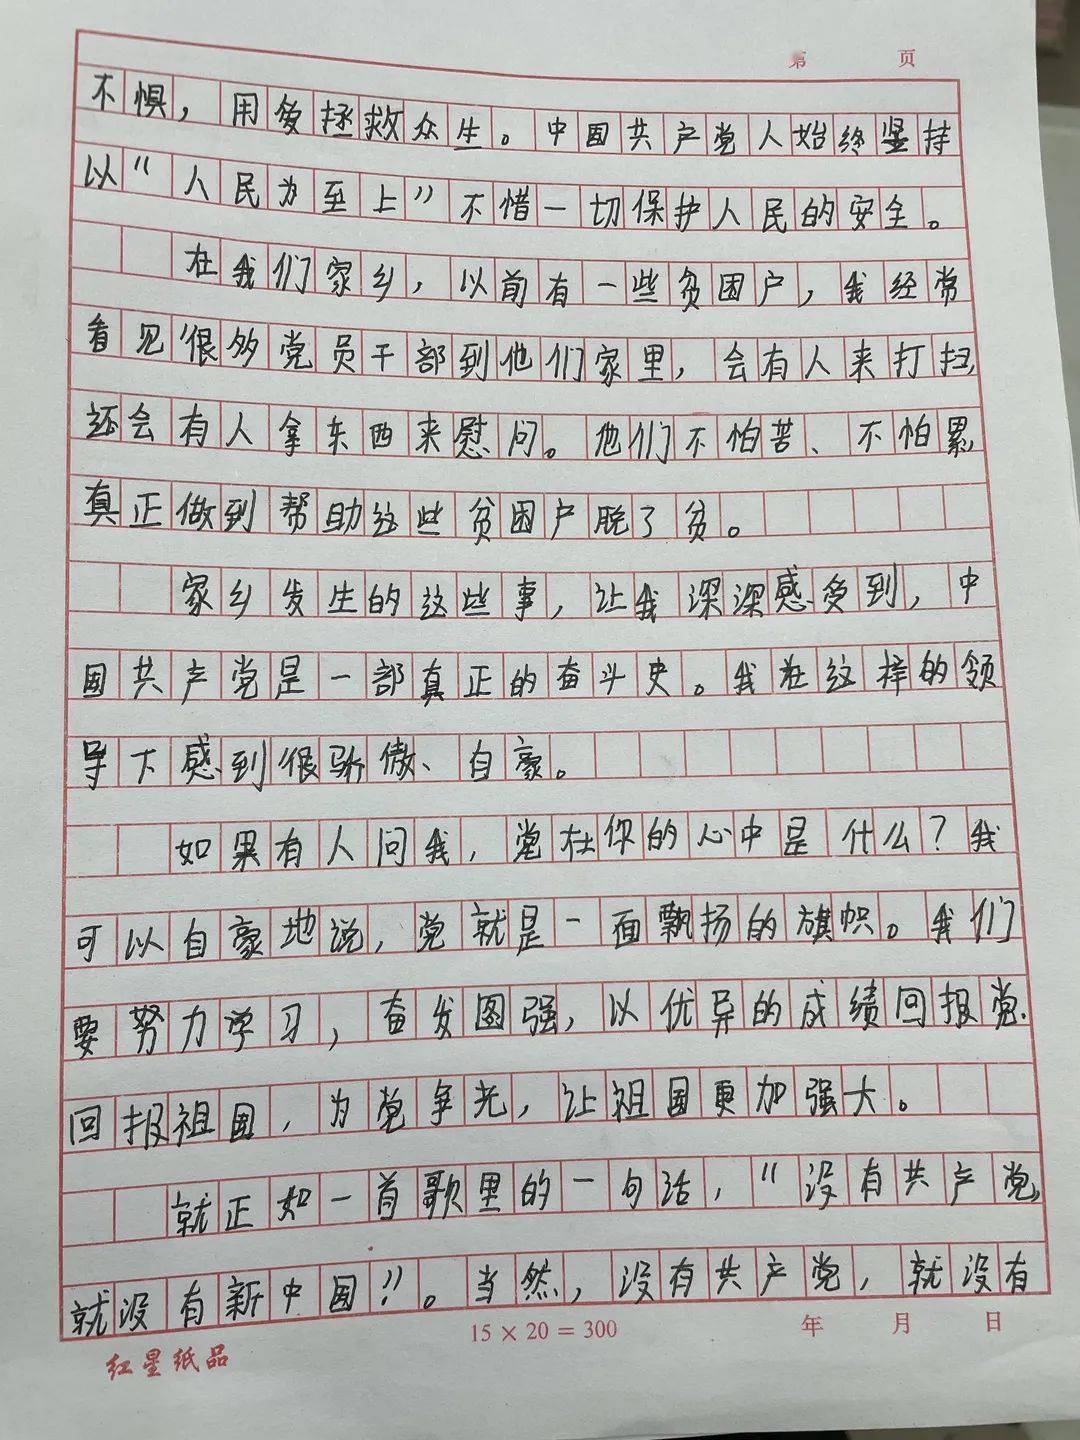 第 页
不惧，用爱拯救众生。中国共产党人始终坚持
以“人民为至上”不惜一切保护人民的安全。
在我们家乡，以前有一些贫困户，我经常
看见很多党员干部到他们家里，会有人来打扫，
还会有人拿东西来慰问。他们不怕苦、不怕累，
真正做到帮助这些贫困户脱了贫。
家乡发生的这些事，让我深深感受到，中
国共产党是一部真正的奋斗史。我在这样的领
导下感到很骄傲、自豪。
如果有人问我，党在你的心中是什么？我
可以自豪地说，党就是一面飘扬的旗帜。我们
要努力学习，奋发图强，以优异的成绩回报党，
回报祖国，为党争光，让祖国更加强大。
就正如一首歌里的一句话，“没有共产党，
就没有新中国！”。当然，没有共产党，就没有
15×20=300 年 月 日
红星纸品